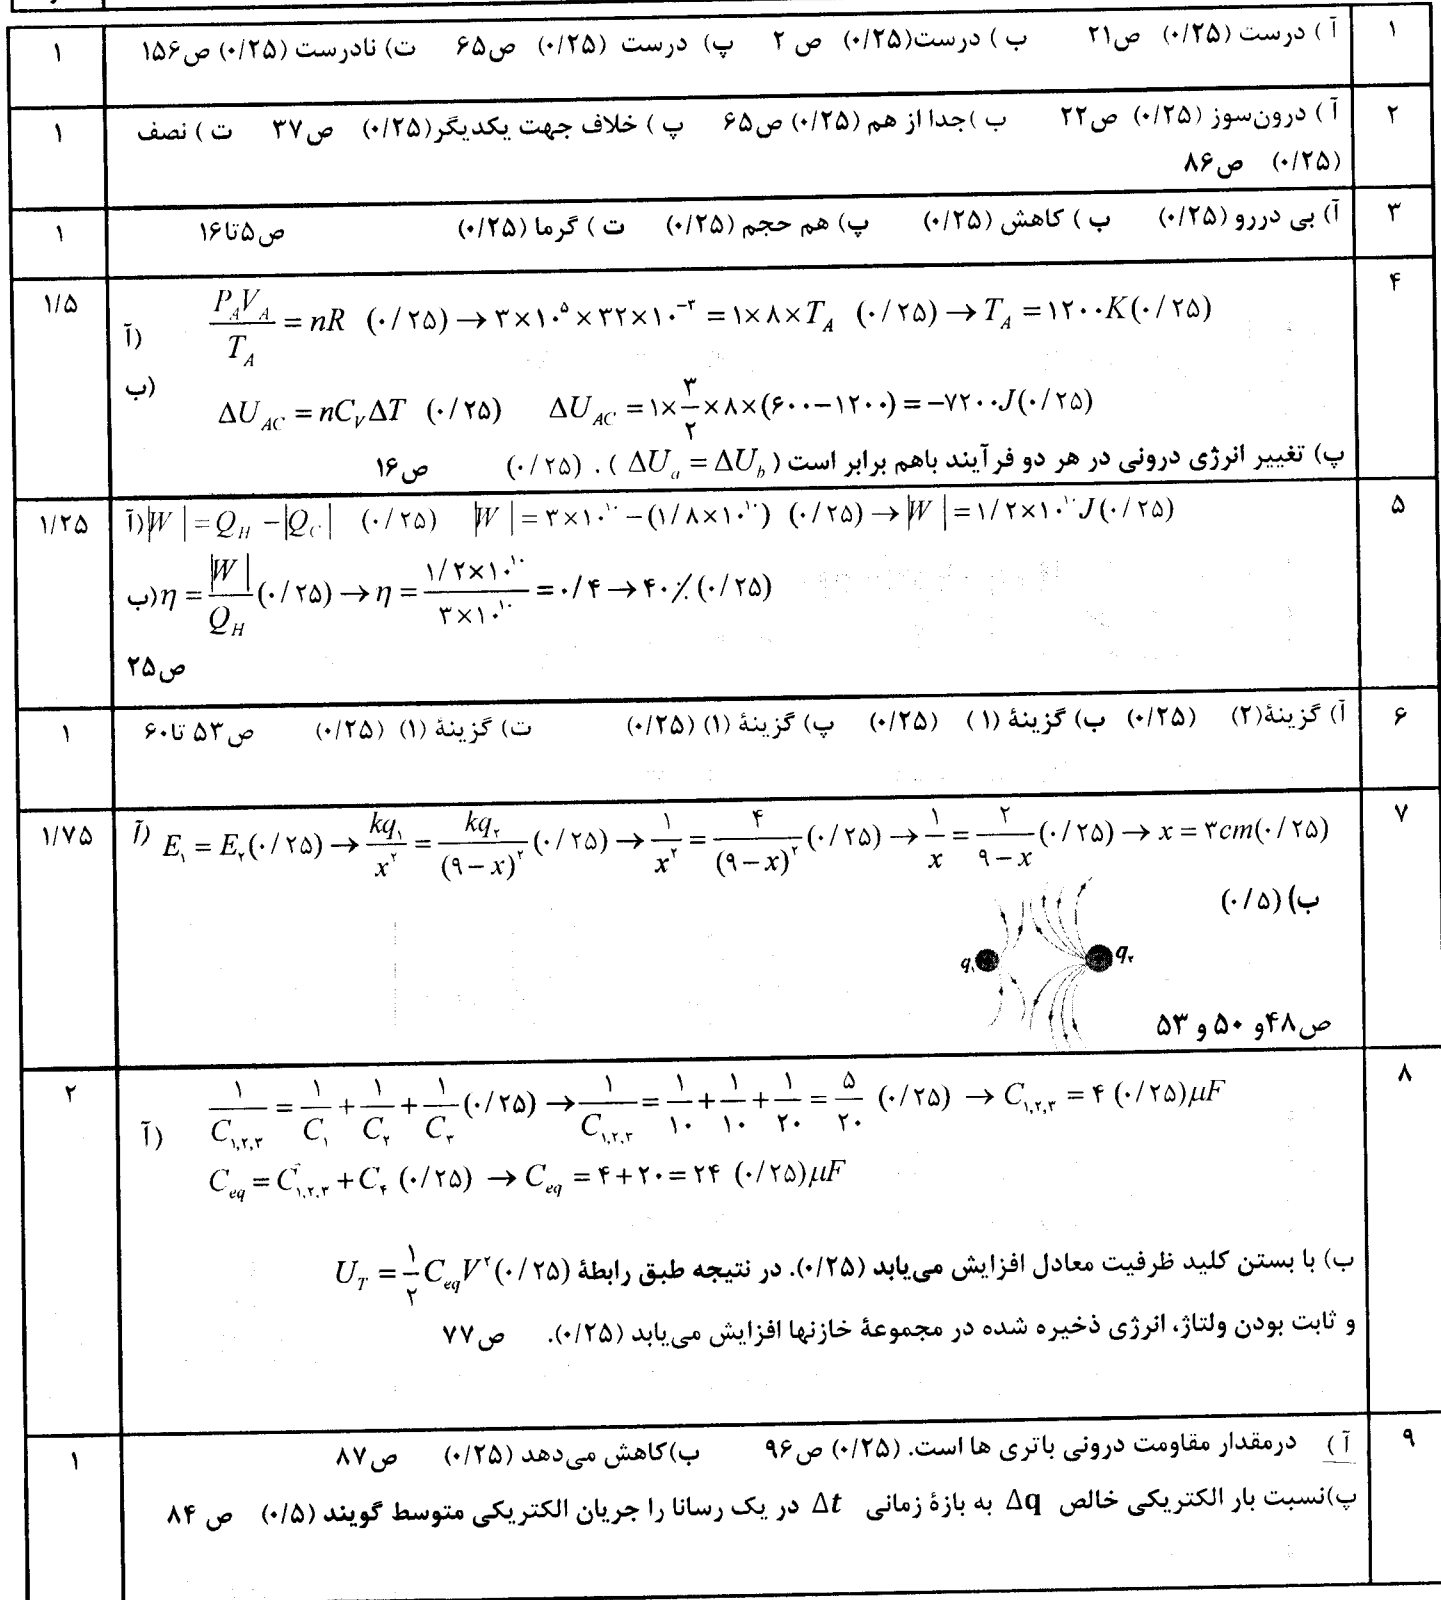 ۱ آ ) درست (۰/۲۵) ص۲۱ ب ) درست(۰/۲۵) ص ۲ پ) درست (۰/۲۵) ص۶۵ ت) نادرست (۰/۲۵) ص۱۵۶ ۱
۲ آ ) درون‌سوز (۰/۲۵) ص۲۲ ب )جدا از هم (۰/۲۵) ص۶۵ پ ) خلاف جهت یکدیگر(۰/۲۵) ص۳۷ ت ) نصف ۱
(۰/۲۵) ص۸۶
۳ آ) بی دررو (۰/۲۵) ب ) کاهش (۰/۲۵) پ) هم حجم (۰/۲۵) ت ) گرما (۰/۲۵) ص۵تا۱۶ ۱
۴ آ) P_A V_A / T_A = nR (۰/۲۵) → ۳×۱۰^۵×۳۲×۱۰^-۳ = ۱×۸×T_A (۰/۲۵) → T_A = ۱۲۰۰K(۰/۲۵) ۱/۵
ب) ΔU_AC = nC_VΔT (۰/۲۵) ΔU_AC = ۱×۳/۲×۸×(۶۰۰−۱۲۰۰) = −۷۲۰۰J(۰/۲۵)
پ) تغییر انرژی درونی در هر دو فرآیند باهم برابر است ( ΔU_a = ΔU_b ) . (۰/۲۵) ص۱۶
۵ آ) |W| = Q_H − |Q_C| (۰/۲۵) |W| = ۳×۱۰^۱۰ − (۱/۸×۱۰^۱۰) (۰/۲۵) → |W| = ۱/۲×۱۰^۱۰ J(۰/۲۵) ۱/۲۵
ب) η = |W| / Q_H (۰/۲۵) → η = ۱/۲×۱۰^۱۰ / ۳×۱۰^۱۰ = ۰/۴ → ۴۰٪ (۰/۲۵)
ص۲۵
۶ آ) گزینۀ(۲) (۰/۲۵) ب) گزینۀ (۱ ) (۰/۲۵) پ) گزینۀ (۱) (۰/۲۵) ت) گزینۀ (۱) (۰/۲۵) ص۵۳ تا۶۰ ۱
۷ آ) E_۱ = E_۲(۰/۲۵) → kq_۱ / x^۲ = kq_۲ / (۹−x)^۲ (۰/۲۵) → ۱ / x^۲ = ۴ / (۹−x)^۲ (۰/۲۵) → ۱ / x = ۲ / ۹−x (۰/۲۵) → x = ۳cm(۰/۲۵) ۱/۷۵
ب) (۰/۵)
q_۱ q_۲
ص۴۸و ۵۰ و ۵۳
۸ آ) ۱/C_۱,۲,۳ = ۱/C_۱ + ۱/C_۲ + ۱/C_۳ (۰/۲۵) → ۱/C_۱,۲,۳ = ۱/۱۰ + ۱/۱۰ + ۱/۲۰ = ۵/۲۰ (۰/۲۵) → C_۱,۲,۳ = ۴ (۰/۲۵)μF ۲
C_eq = C_۱,۲,۳ + C_۴ (۰/۲۵) → C_eq = ۴+۲۰ = ۲۴ (۰/۲۵)μF
ب) با بستن کلید ظرفیت معادل افزایش می‌یابد (۰/۲۵). در نتیجه طبق رابطۀ U_T = ۱/۲ C_eq V^۲ (۰/۲۵)
و ثابت بودن ولتاژ، انرژی ذخیره شده در مجموعۀ خازنها افزایش می‌یابد (۰/۲۵). ص۷۷
۹ آ ) درمقدار مقاومت درونی باتری ها است. (۰/۲۵) ص۹۶ ب)کاهش می‌دهد (۰/۲۵) ص۸۷ ۱
پ)نسبت بار الکتریکی خالص Δq به بازۀ زمانی Δt در یک رسانا را جریان الکتریکی متوسط گویند (۰/۵) ص ۸۴